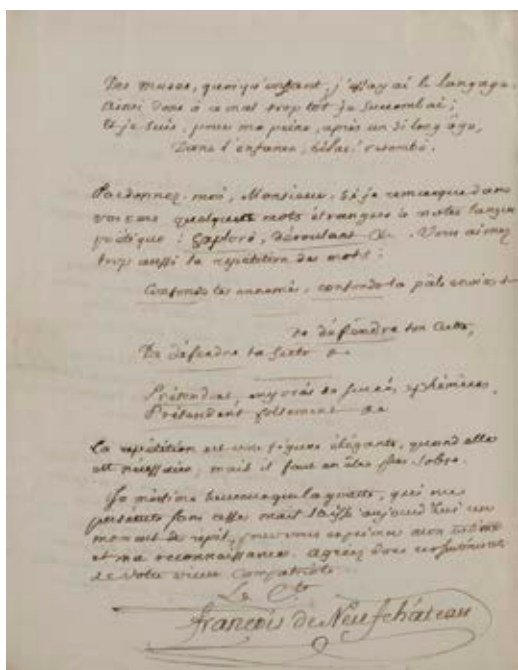 Des muses, quoiqu'enfant, j'essayai le langage.
Ainsi donc à ce mal trop tôt je succombai;
Et je suis, pour ma peine, après un si long âge,
Dans l'enfance, hélas! retombé.
Pardonnez-moi, Monsieur, si je remarque dans
vos vers quelques mots étrangers à notre langue
poétique: exploré, déroulant &c. Vous aimez
trop aussi la répétition des mots:
Confonds tes ennemis, confonds la pâle envie &
de défendre ton culte,
De défendre ta &c
Prétendent, enyvrés de succès éphémères,
Prétendent follement &c
La répétition est une figure élégante, quand elle
est nécessaire; mais il faut en être sobre.
Je m'estime heureux que la goutte, qui me
persécute sans cesse m'ait laissé aujourd'hui un
moment de répit, pour vous exprimer mon estime
et ma reconnaissance. agréez donc
de votre vieux compatriote.
Le Cte
François de Neufchâteau